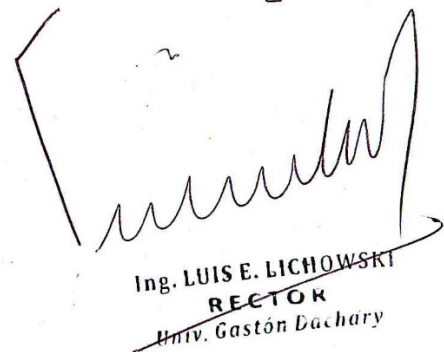 Ing. LUIS E. LICHOWSKI
RECTOR
Univ. Gastón Dachary